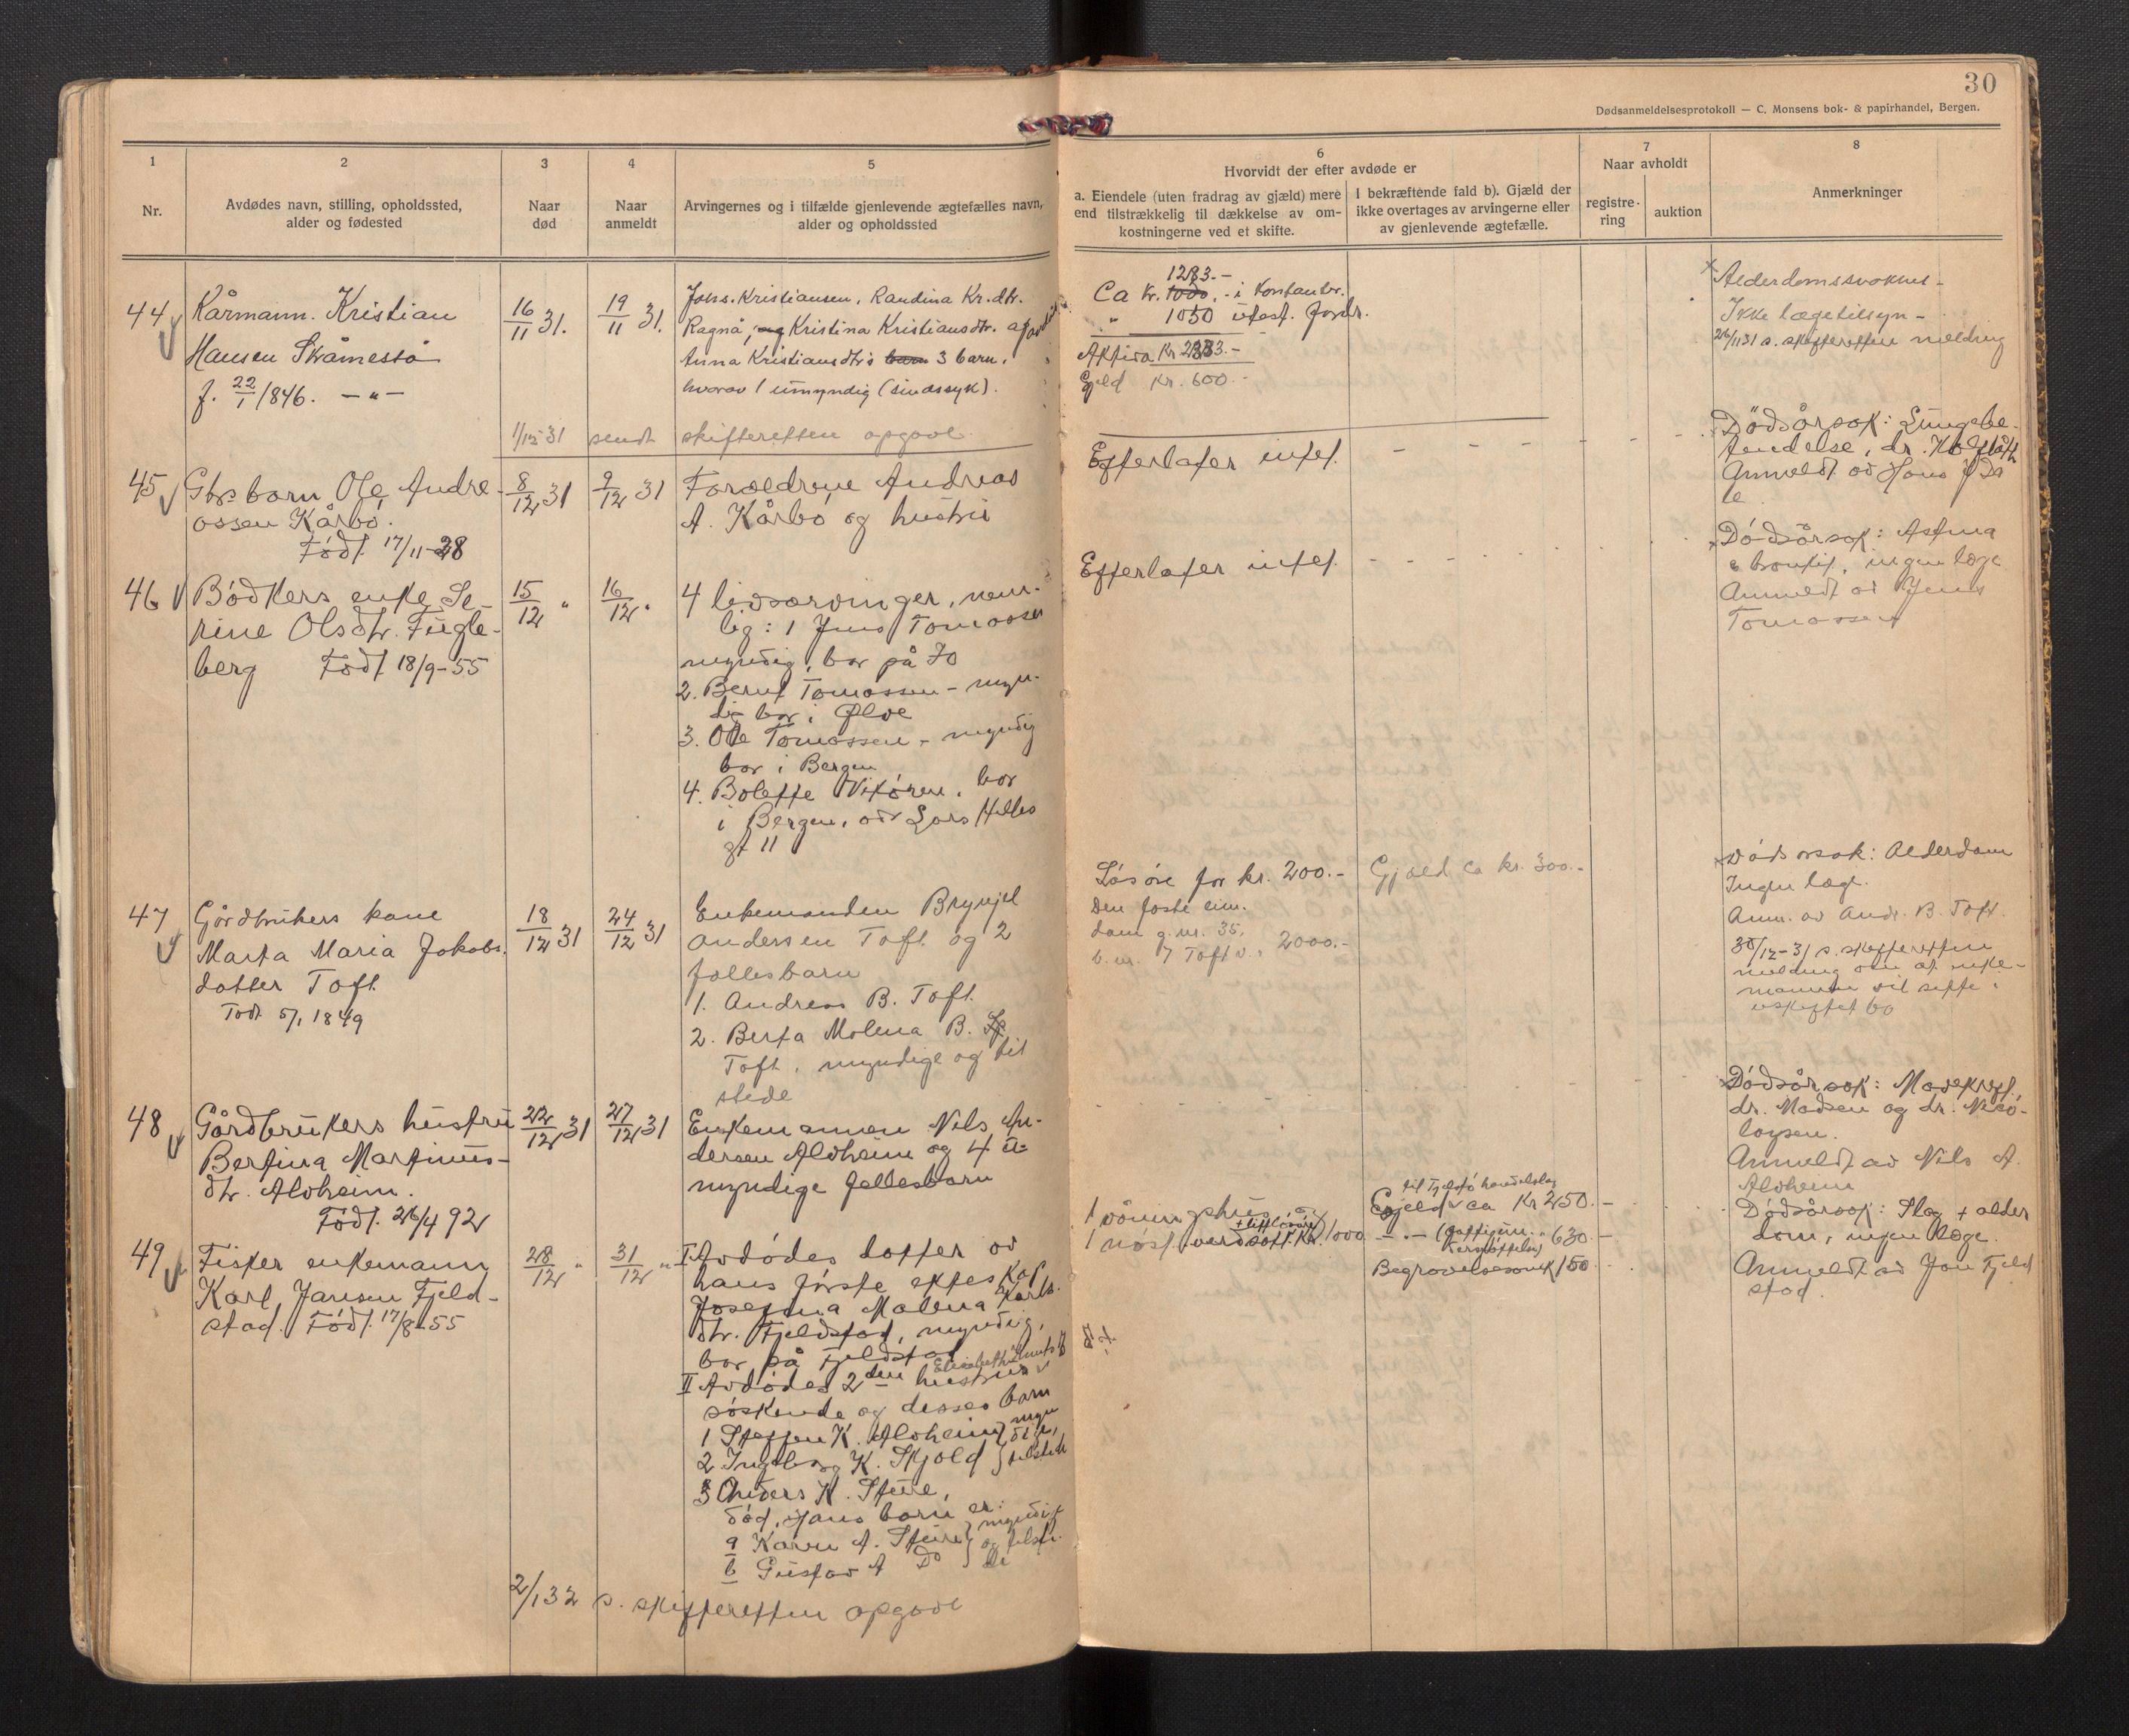 30
Dødsanmeldelsesprotokoll — C. Monsens bok- & papirhandel, Bergen.
1
Nr.
2
Avdødes navn, stilling, opholdssted,
alder og fødested
3
Naar
død
4
Naar
anmeldt
5
Arvingernes og i tilfælde gjenlevende ægtefælles navn,
alder og opholdssted
6
Hvorvidt der efter avdøde er
a. Eiendele (uten fradrag av gjæld) mere
end tilstrækkelig til dækkelse av om-
kostningerne ved et skifte.
I bekræftende fald b). Gjæld der
ikke overtages av arvingerne eller
av gjenlevende ægtefælle.
7
Naar avholdt
registre-
ring
auktion
8
Anmerkninger
44
Kårmann. Kristian
Hansen
f. 22/1 1846. — " —
16/11 31.
19/11 31.
Johs. Kristiansen, Randina Kr.dtr.
Ragna, og Kristina Kristiansdtr.
Anna Kristiansdtrs barn 3 barn,
hvorav 1 umyndig (sindssyk).
1283.-
Ca kr. 1000,- i kontanter.
" 1050 utest. fordr.
Aktiva Kr 2333.-
Gjeld kr. 600.-
Alderdomssvakhet -
Ikke lægetilsyn -
26/11 31 s. skifteretten melding
1/12 31 sendt skifteretten opgave
45
Gbr. barn Ole Andre-
assen Kårbø.
Født 17/11-28
8/12 31
9/12 31
Forældrene Andreas
A. Kårbø og hustru
Efterlater intet.
Dødsårsak: Lungebe-
tendelse, dr.
Anmeldt av Hans
46
Bødkers enke Se-
rine Olsdtr. Fugle-
berg Født 18/9-55
15/12 "
16/12 "
4 livsarvinger, nem-
lig: 1 Jens Tomassen
myndig, bor på
2. Bernt Tomassen - myn-
dig bor i Ølve
3. Ole Tomassen - myndig
bor i Bergen
4. Bolette Vitøren, bor
i Bergen, Lars Hilles
gt 11
Efterlater intet.
Dødsårsak: Astma
& bronkit, ingen læge
Anmeldt av Jens
Tomassen
47
Gårdbrukers kone
Marta Maria Jakobs-
datter Toft
Født 5/1 1849
18/12 31
24/12 31
Enkemanden Brynjel
Andersen Toft og 2
fellesbarn
1. Andreas B. Toft
2. Berta Molena B.
Toft, myndige og til
stede
Løsøre for kr. 200.-
Den faste eien-
dom g.nr. 35.
b.nr. 7 Toft v. 2000.-
Gjæld ca kr. 300.-
Dødsårsak: Alderdom
Ingen læge.
Anm. av Andr. B. Toft.
30/12-31 s. skifteretten
melding om at enke-
mannen vil sitte i
uskiftet bo
48
Gårdbrukers hustru
Bertina Martinus-
dtr. Alvheim.
Født 26/4 92
22/12 31
27/12 31
Enkemannen Nils An-
dersen Alvheim og 4 u-
myndige fellesbarn
Dødsårsak: Mavekreft,
dr. Madsen og dr. Nico-
laysen.
Anmeldt av Nils A.
Alvheim
49
Fisker enkemann
Karl Jansen Fjeld-
stad. Født 17/8-55
28/12 "
31/12 "
I Avdødes datter av
hans første ekteskap
Josefina Malena Karls-
dtr. Fjeldstad, myndig,
bor på Fjeldstad
II Avdødes 2den hustrus
søskende og desses barn
1 Steffen K. Alvheim
2 Ingeborg K. Skjold
myn
dige,
tilstede
3 Anders K. Sture,
død. Hans barn er:
a Karen A. Sture
b Gustav A Do
myndige
og tilste
de
1 våningshus og
1 nøst + litt løsøre
verdsatt Kr. 1000
til Fjelstø handelslag
Gjeld ca Kr 250.-
— " — 630 -
Begravelsesomk 150
Dødsårsak: Slag + alder
dom, ingen læge.
Anmeldt av Jon Fjeld
stad.
2/1 32 s. skifteretten opgave